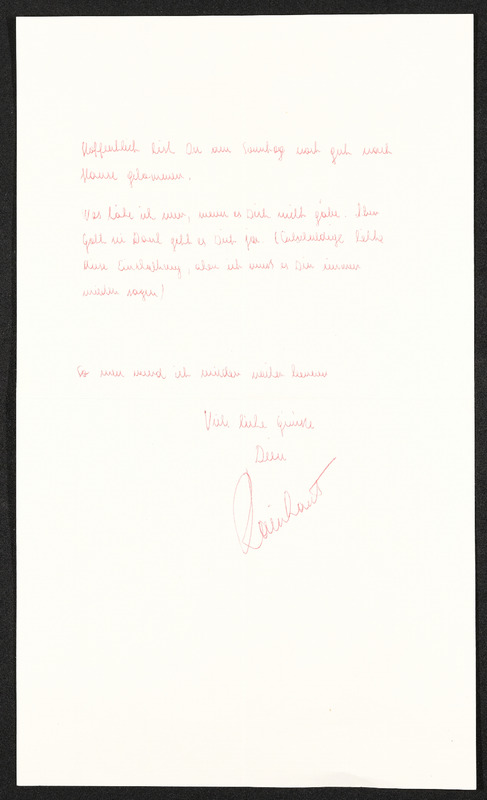 Hoffentlich bist Du am Sonntag noch gut nach
Hause gekommen.
Was täte ich nur, wenn es Dich nicht gäbe. Aber
Gott sei Dank gibt es Dich ja. (Entschuldige bitte
diese Einschaltung, aber ich muß es Dir immer
wieder sagen!
So nun werde ich wieder weiter
Viele liebe Grüsse
Dein